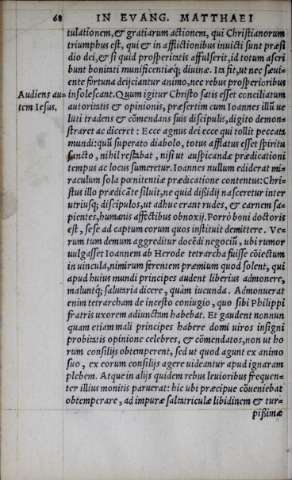 68 IN EVANG. MATTHAEI
tulationem, & gratiarum actionem, qui Christianorum
triumphus est, qui & in afflictionibus inuicti sunt præsi
dio dei, & si quid prosperitatis affulserit, id totum ascri
bunt bonitati munificentiæq; diuinæ. Ita fit, ut nec sæui-
ente fortuna deijciantur animo, nec rebus prosperioribus
Audiens au= insolescant. Quum igitur Christo satis esset conciliatum
tem Iesus. autoritatis & opinionis, præsertim cum Ioannes illũ ue
luti tradens & cõmendans suis discipulis, digito demon=
straret ac diceret: Ecce agnus dei ecce qui tollit peccata
mundi: quũ superato diabolo, totus afflatus esset spiritu
sancto, nihil restabat, nisi ut auspicandæ prædicationi
tempus ac locus sumeretur. Ioannes nullum ediderat mi=
raculum sola pœnitentiæ prædicatione contentus: Chri=
stus illo prædicãte siluit, ne quid dißidij nasceretur inter
utriusq; discipulos, ut adhuc erant rudes, & carnem sa=
pientes, humanis affectibus obnoxij. Porrò boni doctoris
est, sese ad captum eorum quos instituit demittere. Ve=
rum tum demum aggreditur docẽdi negociũ, ubi rumor
uulgasset Ioannem ab Herode tetrarcha fuisse cõiectum
in uincula, nimirum ferentem præmium quod solent, qui
apud huius mundi principes audent liberius admonere,
maluntq; salutaria dicere, quàm iucunda. Admonuerat
enim tetrarcham de incesto coniugio, quo sibi Philippi
fratris uxorem adiunctam habebat. Et gaudent nonnun
quam etiam mali principes habere domi uiros insigni
probitatis opinione celebres, & cõmendatos, non ut ho
rum consilijs obtemperent, sed ut quod agunt ex animo
suo, ex eorum consilijs agere uideantur apud ignaram
plebem. Atque in alijs quidem rebus leuioribus frequen=
ter illius monitis paruerat: hic ubi præcipue cõueniebat
obtemperare, ad impuræ saltatriculæ libidinem & tur=
pißimæ